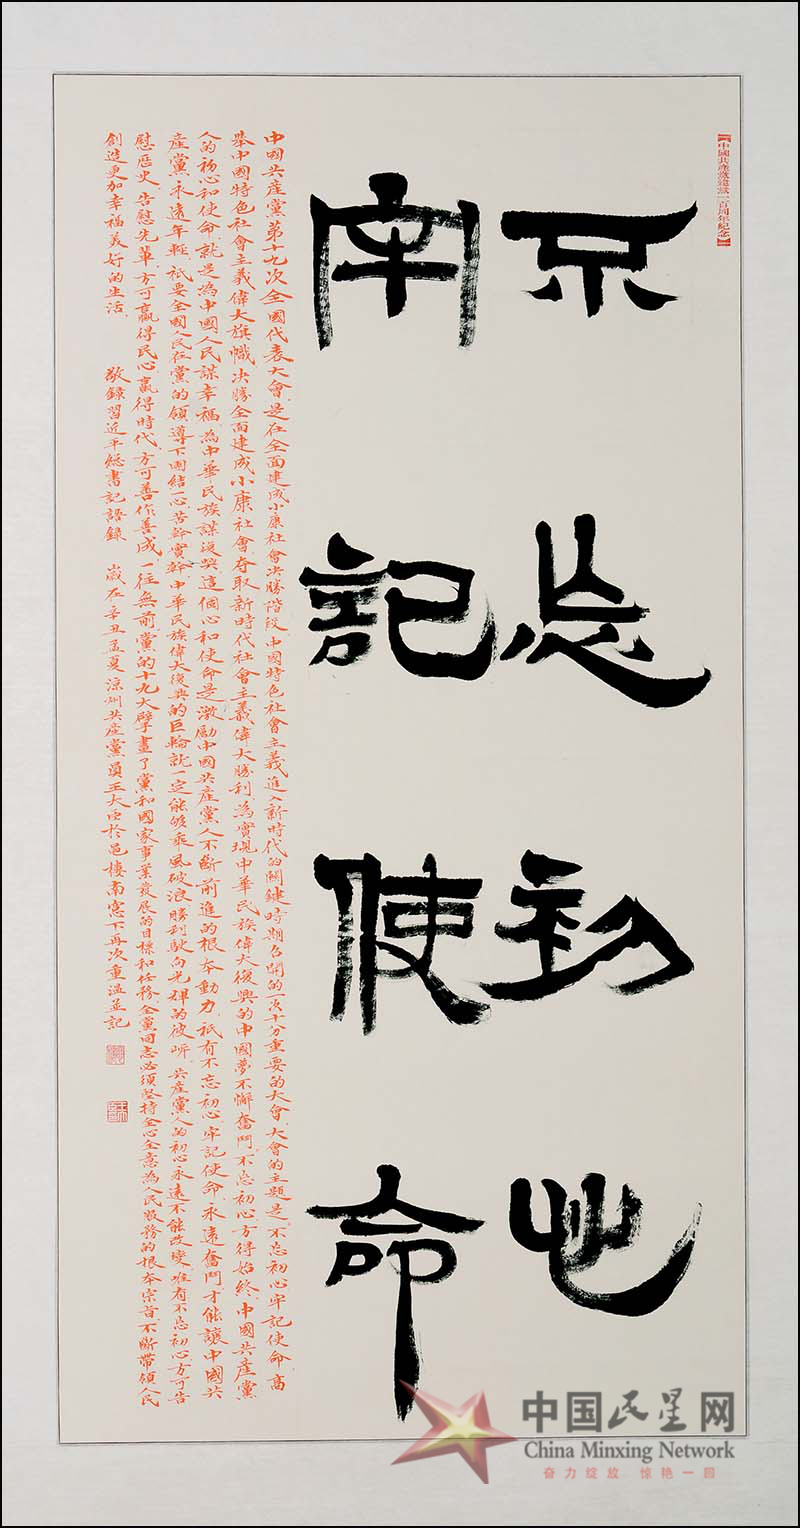 【中國共產黨建黨一百周年紀念】
不忘初心
牢記使命
中國共產黨第十九次全國代表大會是在全面建成小康社會決勝階段中國特色社會主義進入新時代的關鍵時期召開的一次十分重要的大會大會的主題是不忘初心牢記使命高
舉中國特色社會主義偉大旗幟決勝全面建成小康社會奪取新時代社會主義偉大勝利為實現中華民族偉大復興的中國夢不懈奮鬥不忘初心方得始終中國共產黨
人的初心和使命就是為中國人民謀幸福為中華民族謀復興這個心和使命是激勵中國共產黨人不斷前進的根本動力祇有不忘初心牢記使命永遠奮鬥才能讓中國共
產黨永遠年輕祇要全國人民在黨的領導下團結一心苦幹實幹中華民族偉大復興的巨輪就一定能够乘風破浪勝利駛向光輝的彼岸共產黨人的初心永遠不能改變唯有不忘初心方可告
慰歷史告慰先輩方可贏得民心贏得時代方可善作善成一往無前黨的十九大擘畫了黨和國家事業發展的目標和任務全黨同志必須堅持全心全意為人民服務的根本宗旨不斷帶領人民
創造更加幸福美好的生活
敬錄習近平總書記語錄
歲在辛丑孟夏涼州共產黨員王大臣於邑樓南窗下再次重溫並記
中国民星网
China Minxing Network
奋力绽放 惊艳一回